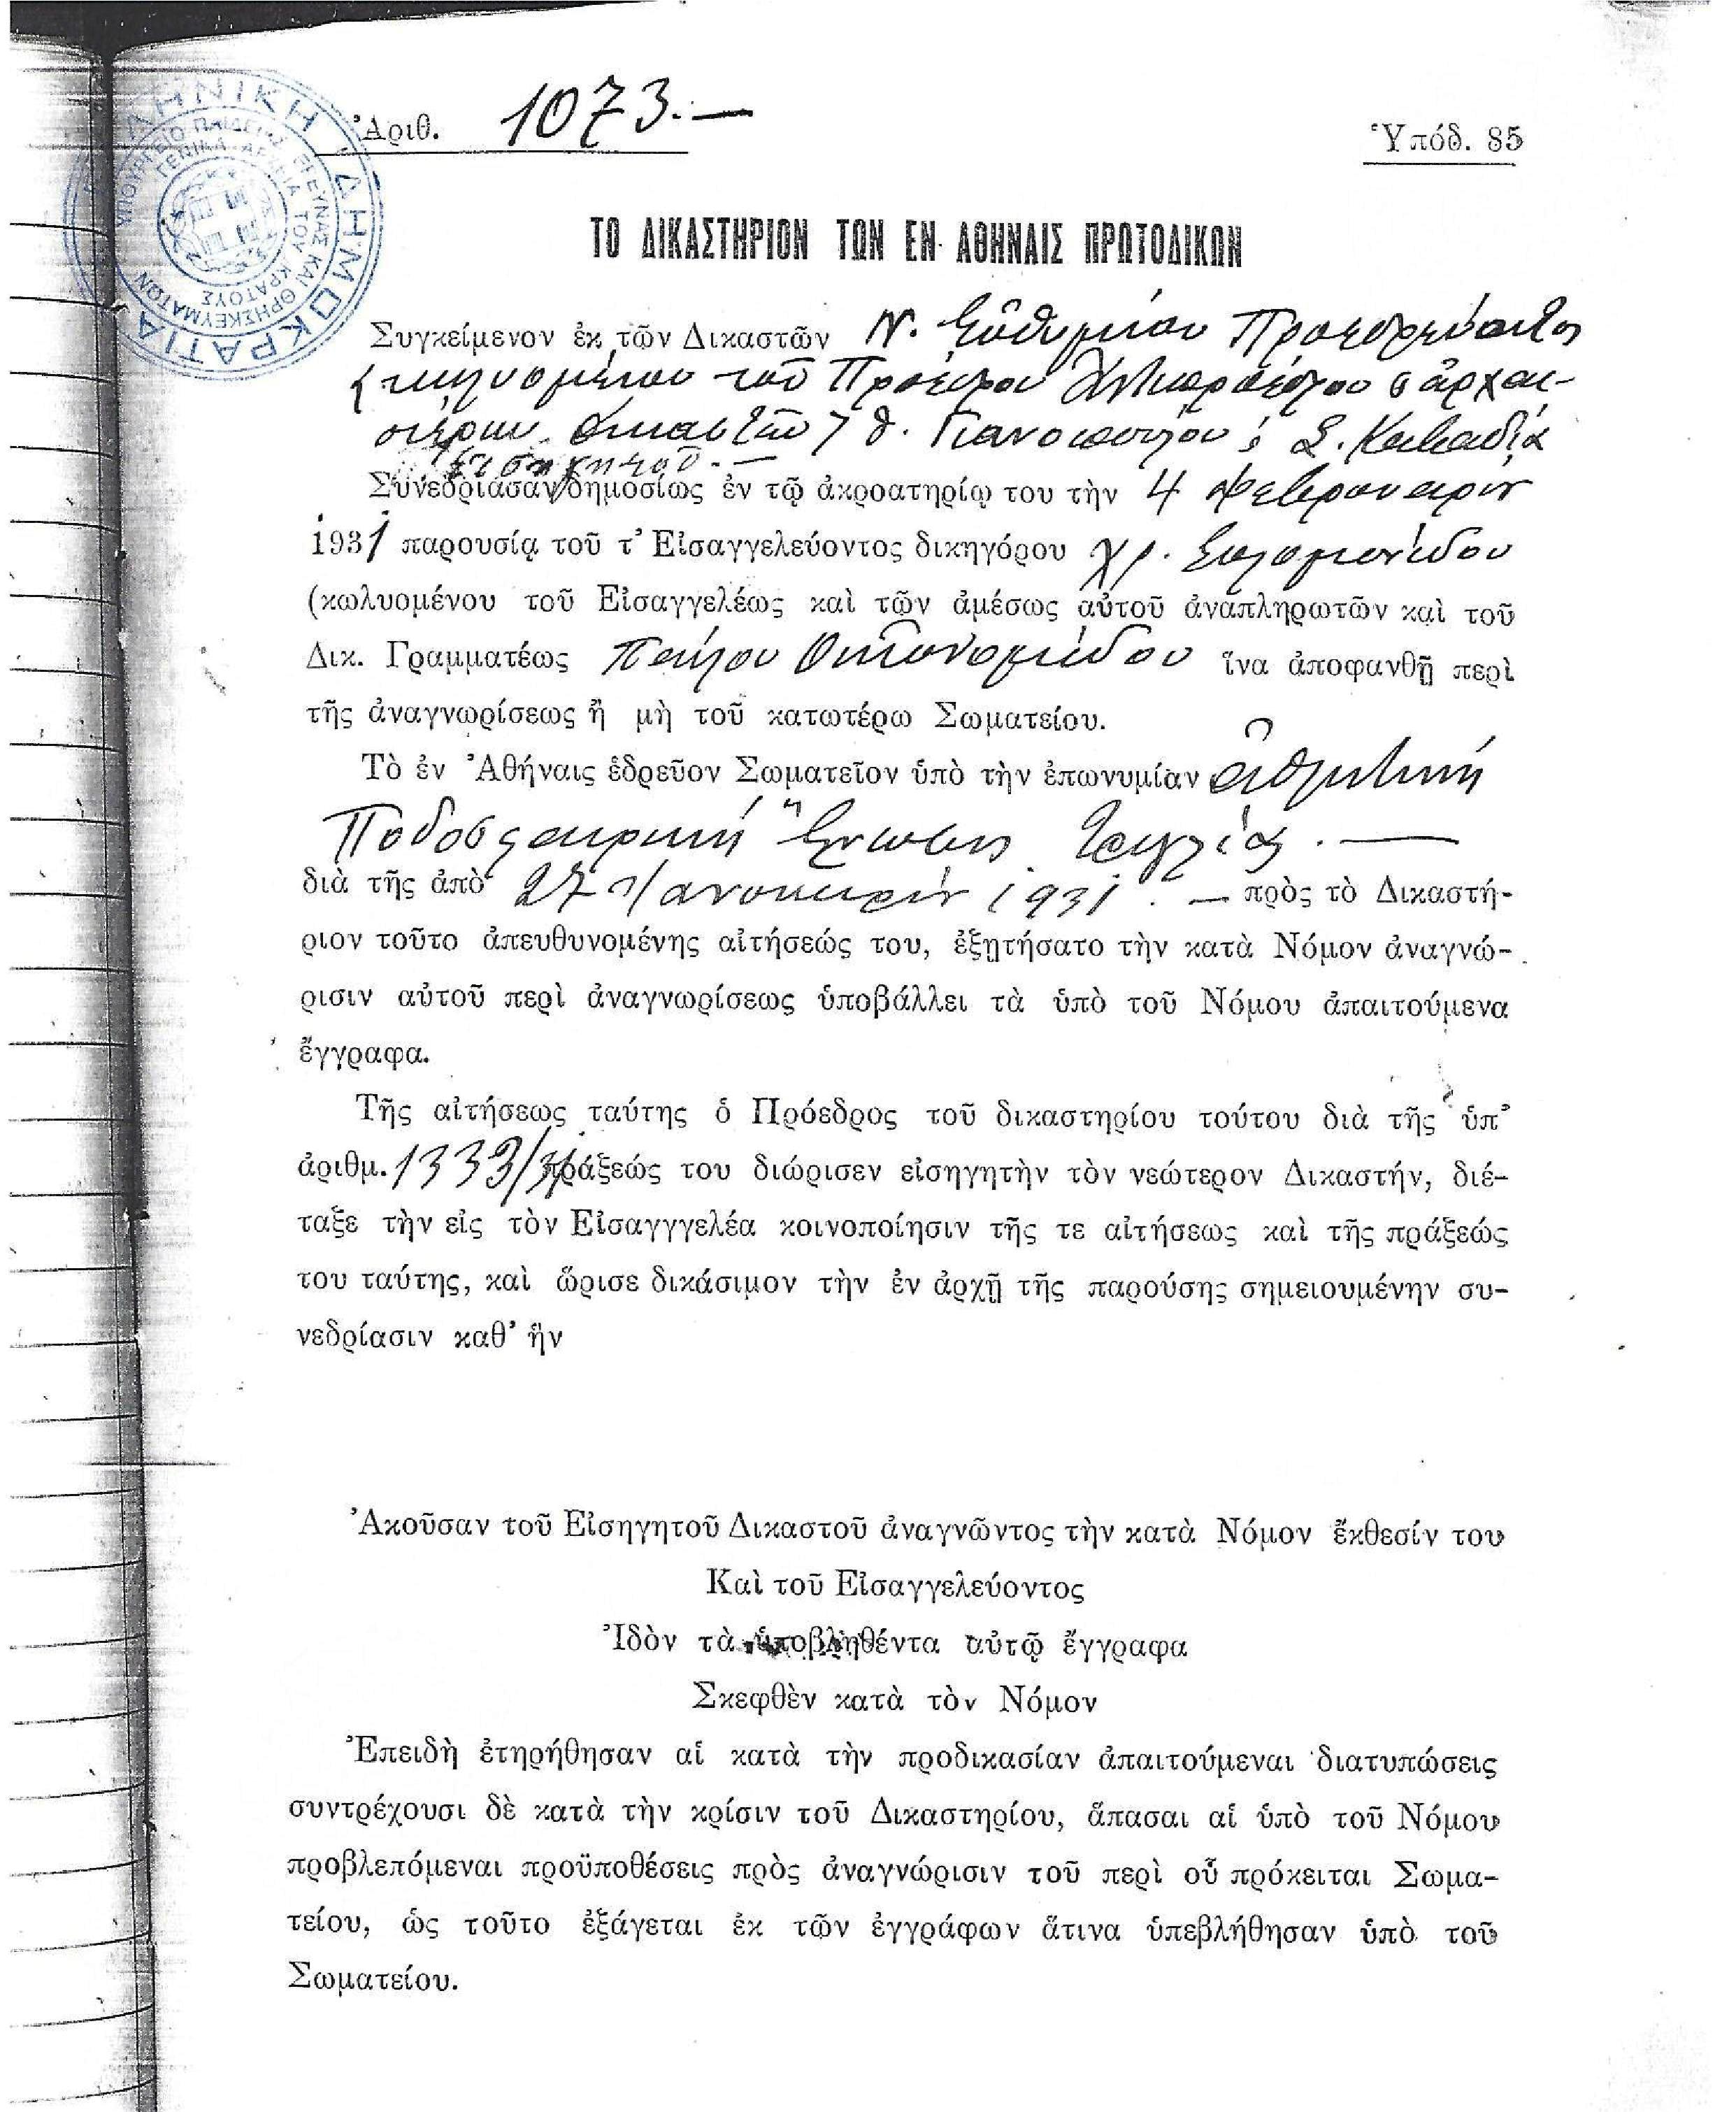 ΕΛΛΗΝΙΚΗ ΔΗΜΟΚΡΑΤΙΑ
ΥΠΟΥΡΓΕΙΟ ΠΑΙΔΕΙΑΣ ΕΡΕΥΝΑΣ ΚΑΙ ΘΡΗΣΚΕΥΜΑΤΩΝ
ΓΕΝΙΚΑ ΑΡΧΕΙΑ ΤΟΥ ΚΡΑΤΟΥΣ
Ἀριθ. 1073.—
Ὑπόδ. 85
ΤΟ ΔΙΚΑΣΤΗΡΙΟΝ ΤΩΝ ΕΝ ΑΘΗΝΑΙΣ ΠΡΩΤΟΔΙΚΩΝ
Συγκείμενον ἐκ τῶν Δικαστῶν Ν. Εὐθυμίου Προεδρεύοντος
κωλυομένου τοῦ Προέδρου ἀρχαι-
οτέρων δικαστῶν, Θ. Γιανοπούλου Σ. Καββαδία
Εἰσηγητοῦ.—
Συνεδριάσαν δημοσίως ἐν τῷ ἀκροατηρίῳ του τὴν 4 Φεβρουαρίου
1931 παρουσίᾳ τοῦ τ' Εἰσαγγελεύοντος δικηγόρου Χρ. Σολομωνίδου
(κωλυομένου τοῦ Εἰσαγγελέως καὶ τῶν ἀμέσως αὐτοῦ ἀναπληρωτῶν καὶ τοῦ
Δικ. Γραμματέως Παύλου Οἰκονομίδου ἵνα ἀποφανθῇ περὶ
τῆς ἀναγνωρίσεως ἢ μὴ τοῦ κατωτέρω Σωματείου.
Τὸ ἐν Ἀθήναις ἑδρεῦον Σωματεῖον ὑπὸ τὴν ἐπωνυμίαν Ἀθλητικὴ
Ποδοσφαιρικὴ Ἕνωσις Τριγλίας.—
διὰ τῆς ἀπὸ 27 Ἰανουαρίου 1931.— πρὸς τὸ Δικαστή-
ριον τοῦτο ἀπευθυνομένης αἰτήσεώς του, ἐξῃτήσατο τὴν κατὰ Νόμον ἀναγνώ-
ρισιν αὐτοῦ περὶ ἀναγνωρίσεως ὑποβάλλει τὰ ὑπὸ τοῦ Νόμου ἀπαιτούμενα
ἔγγραφα.
Τῆς αἰτήσεως ταύτης ὁ Πρόεδρος τοῦ δικαστηρίου τούτου διὰ τῆς ὑπ'
ἀριθμ. 1333/31 πράξεώς του διώρισεν εἰσηγητὴν τὸν νεώτερον Δικαστήν, διέ-
ταξε τὴν εἰς τὸν Εἰσαγγγελέα κοινοποίησιν τῆς τε αἰτήσεως καὶ τῆς πράξεώς
του ταύτης, καὶ ὥρισε δικάσιμον τὴν ἐν ἀρχῇ τῆς παρούσης σημειουμένην συ-
νεδρίασιν καθ' ἣν
Ἀκοῦσαν τοῦ Εἰσηγητοῦ Δικαστοῦ ἀναγνῶντος τὴν κατὰ Νόμον ἔκθεσίν του
Καὶ τοῦ Εἰσαγγελεύοντος
Ἰδὸν τὰ ὑποβληθέντα αὐτῷ ἔγγραφα
Σκεφθὲν κατὰ τὸν Νόμον
Ἐπειδὴ ἐτηρήθησαν αἱ κατὰ τὴν προδικασίαν ἀπαιτούμεναι διατυπώσεις
συντρέχουσι δὲ κατὰ τὴν κρίσιν τοῦ Δικαστηρίου, ἅπασαι αἱ ὑπὸ τοῦ Νόμου
προβλεπόμεναι προϋποθέσεις πρὸς ἀναγνώρισιν τοῦ περὶ οὗ πρόκειται Σωμα-
τείου, ὡς τοῦτο ἐξάγεται ἐκ τῶν ἐγγράφων ἅτινα ὑπεβλήθησαν ὑπὸ τοῦ
Σωματείου.